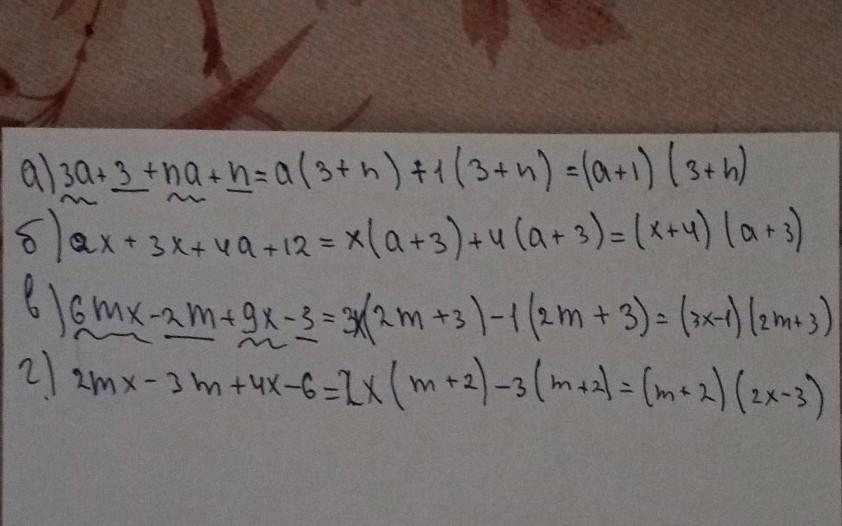 а) 3a + 3 + na + n = a(3 + n) + 1(3 + n) = (a+1)(3+n)
б) ax + 3x + 4a + 12 = x(a + 3) + 4(a + 3) = (x+4)(a+3)
в) 6mx - 2m + 9x - 3 = 3x(2m + 3) - 1(2m + 3) = (3x-1)(2m+3)
г) 2mx - 3m + 4x - 6 = 2x(m + 2) - 3(m+2) = (m+2)(2x-3)